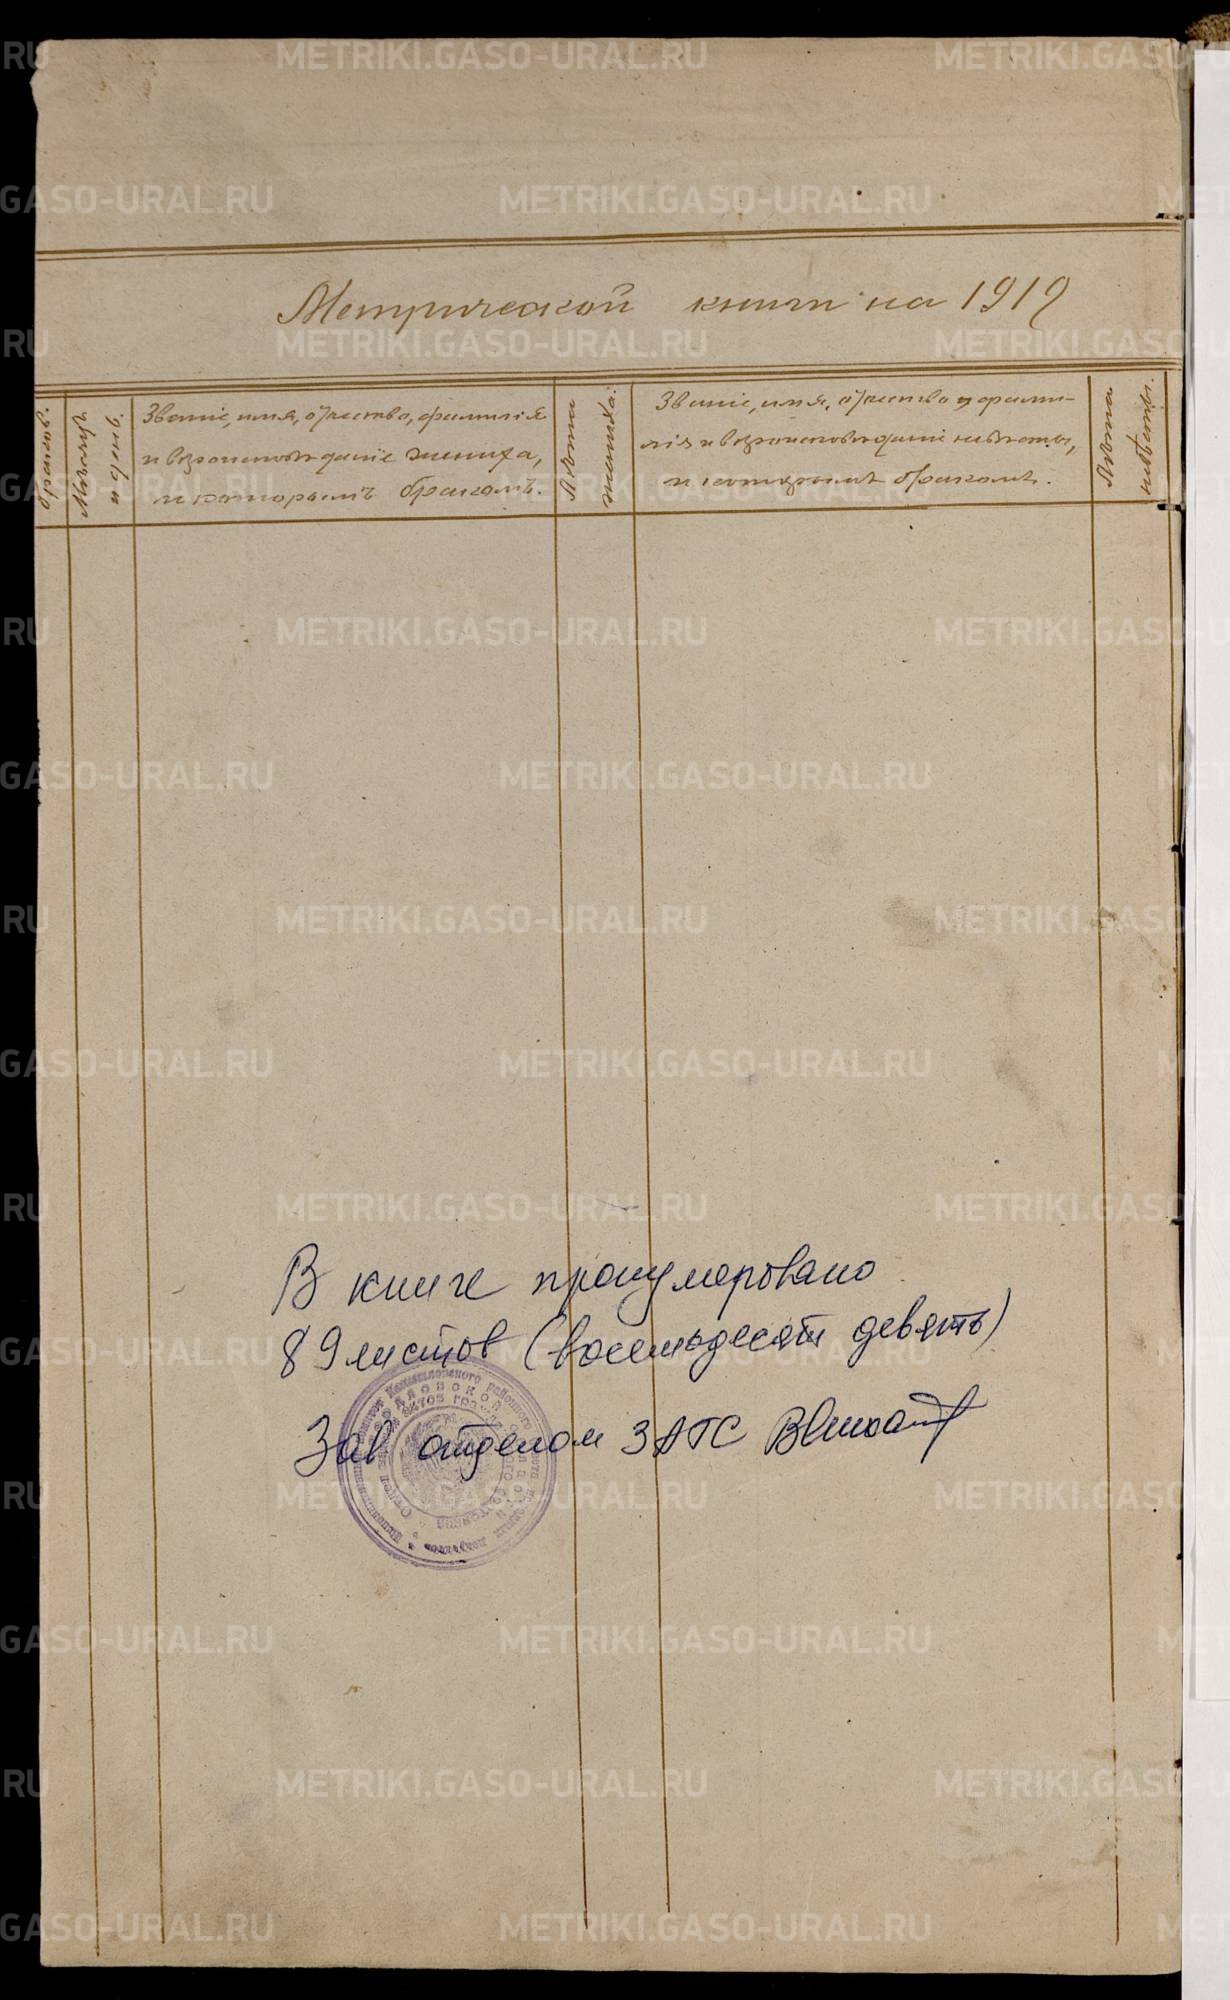 Метрической книги на 1919
браков.
Мѣсяцъ
и день.
Званіе, имя, отчество, фамилія
и вѣроисповѣданіе жениха,
и которымъ бракомъ.
Лѣта
жениха.
Званіе, имя, отчество, фами-
лія и вѣроисповѣданіе невѣсты,
и которымъ бракомъ.
Лѣта
невѣсты.
В книге пронумеровано
89 листов (восемьдесят девять)
Зав отделом ЗАГС
METRIKI.GASO-URAL.RU